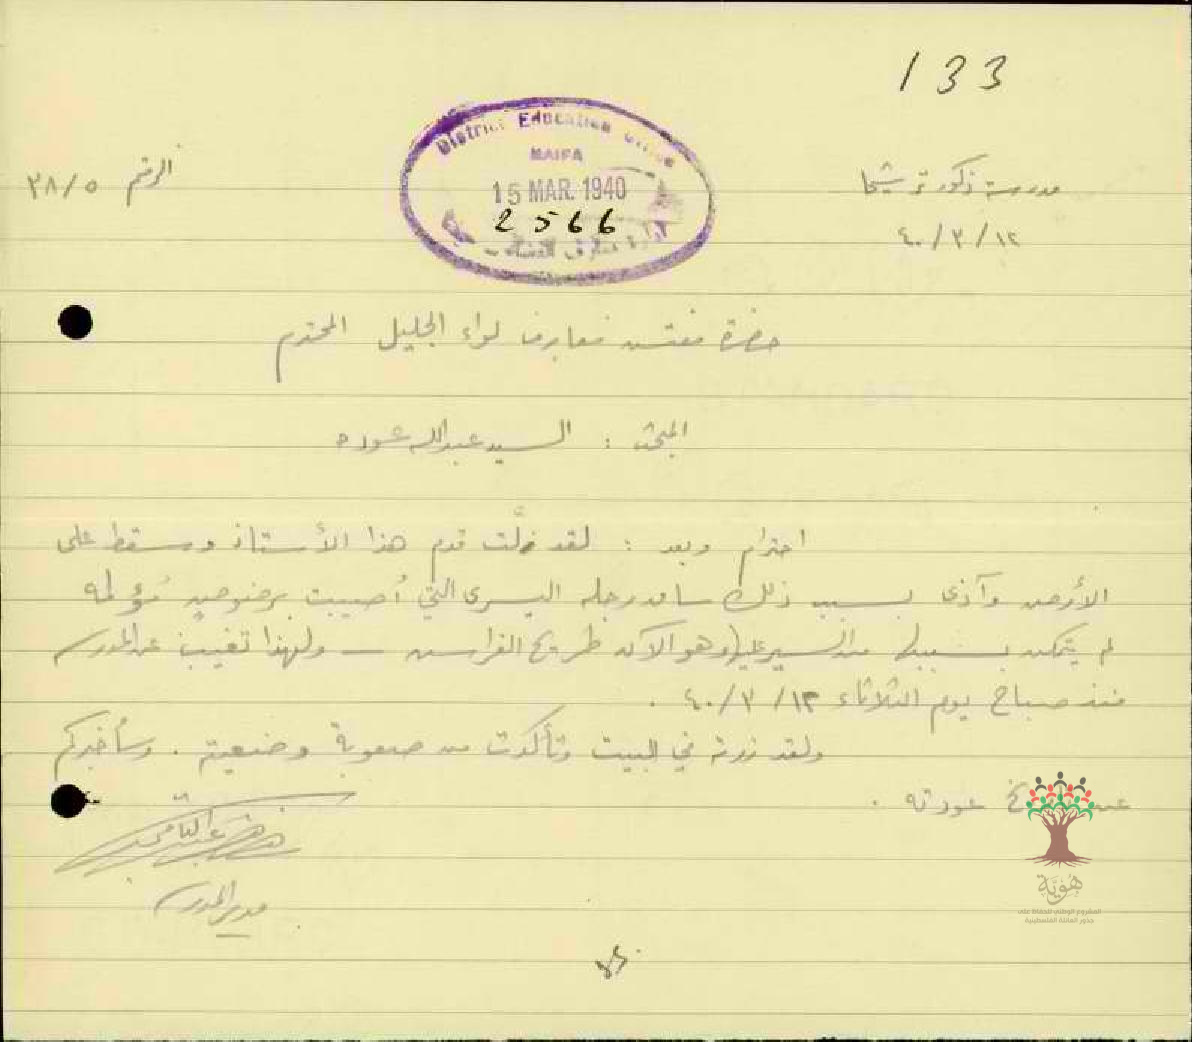 133
District Education Office
HAIFA
15 MAR. 1940
2566
مدرسة ذكور ترشيحا
الرقم ٣٨/٥
١٢/٣/٤٠
حضرة مفتش معارف لواء الجليل المحترم
المبحث : السيد عبدالله عوده
احترام وبعد : لقد زلّت قدم هذا الأستاذ وسقط على
الأرض وآذى بسبب ذلك ساق رجله اليسرى التي أُصيبت برضوض مُؤلمة
لم يتمكن بسببها من السير عليها وهو الآن طريح الفراش – ولهذا تغيب عن المدرسة
منذ صباح يوم الثلاثاء ١٢/٣/٤٠ .
ولقد زرته في البيت وتأكدت من صعوبة وضعيته . وسأخبركم
عن عودته .
مدير المدرسة
هُوِيَّة
المشروع الوطني للحفاظ على
جذور العائلة الفلسطينية